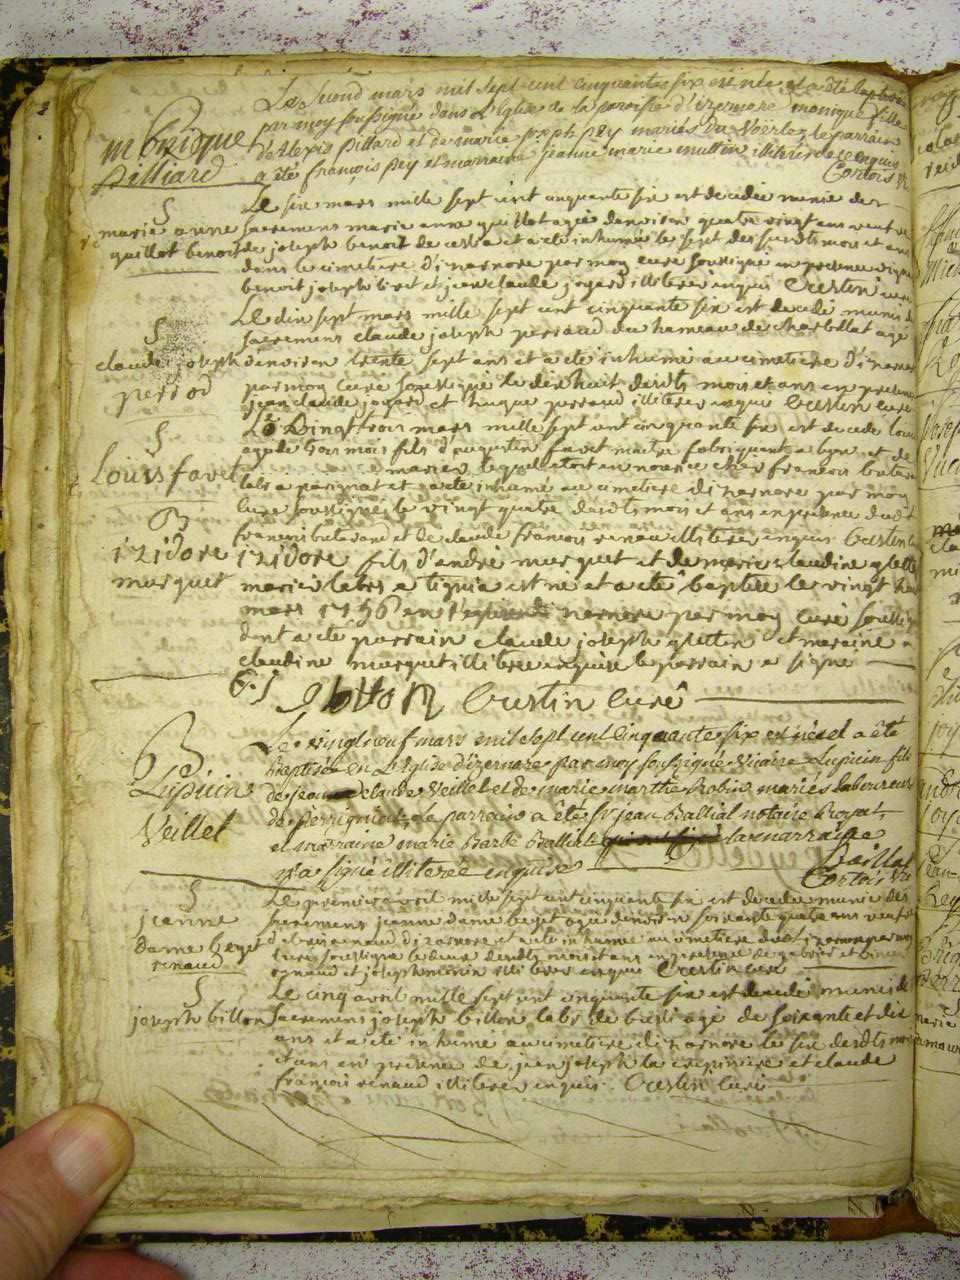 Le second mars mil sept cent cinquante six est née et a été baptisée
par moy soussigné dans L'Eglise de la paroisse d'izernore monique fille
d'alexis pilliard et de marie joseph pey mariés du Voërles le parrain
a été françois pey et marraine jeanne marie mullin illitérés de ce enquis
Cortois Vre
monique
pilliard
Le six mars mille sept cent cinquante six est decedée munie des
marie anne
sacremens marie anne guillot agée denviron quatre vingt ans veuve
guillot benoit
de joseph benoit de et a eté inhumée le sept desdts mois et ans
dans le cimetiere d'izarnore par moy curé soussigné en presence
benoit joseph et jean claude jogard illiteres enquis Crestin curé
Le dix sept mars mille sept cent cinquante six est decedé munis des
sacremens claude joseph perraud du hameau de charbillat agé
claude joseph
denviron trente sept ans et a eté inhumé au cimetiere d'izarnore
perrod
par moy curé soussigné le dix huit desdts mois et ans en presence
jean claude jogard et hugue perraud illiteres enquis Crestin curé
Le Vingt trois mars mille sept cent cinquante six est decedé louis
agé de trois mois fils d'augustin favet maitre fabriquant a lyon et de
Louis favet
mariés lequel etoit en nourice chez francois
labr a perignat et a eté inhumé au cimetiere dizarnore par moy
curé soussigné le vingt quatre desdts mois et ans en presence dudt
francois et de claude francois renau illiteres enquis Crestin curé
B
izidore
izidore fils d'andré murquet et de marie claudine gletton
murquet
mariés labrs a tignia est né et a eté baptisé le vingt huit
mars 1756 en l'eglise d'izarnore par moy curé soussigné
dont a eté parrain claude joseph gletton et maraine
claudine murquet illiterée enquise le parrain a signé
C. J. gletton Crestin curé
Le vingt neuf mars mil sept cent cinquante six est né et a été
B
Baptisé en L'Eglise d'izernore par moy soussigné Vicaire Lupicin fils
Lupicin
de jean Claude Veillet et de marie marthe Robin mariés laboureurs
Veillet
de perrignat, le parrain a été Sr jean Baillat notaire Royal,
et marraine marie Barbe Baillat la marraine
n'a signé illiterée enquise
Baillat
Cortois Vre
Le premier avril mille sept cent cinquante six est decedée munie des
jeanne
sacremens jeanne dame beget agée denviron soixante quatre ans veufve
Dame beget
renaud
de renaud d'izarnore et a eté inhumée au cimetiere dudt izarnore par moy
curé soussigné le deux desdts mois et ans en presence de gabriel et vincent
renaud et joseph monin illiteres enquis Crestin curé
Le cinq avril mille sept cent cinquante six est decedé munis des
joseph billon
sacremens joseph billon labr de agé de soixante et dix
ans et a eté inhumé au cimetiere dizarnore le six desdts mois
et ans en presence de jean joseph la crepiniere et claude
francois renaud illiteres enquis. Crestin curé